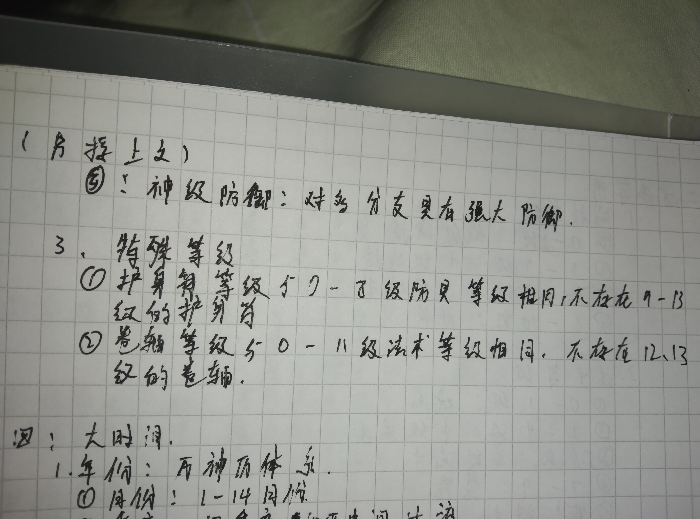 (另接上文)
⑤：神级防御：对多分支具有强大防御.
3. 特殊等级
①护身符等级与0-8级防具等级相同,不存在9-13
级的护身符
②卷轴等级与0-11级法术等级相同.不存在12,13
级的卷轴.
四：大时间.
1.年份：万神历体系.
①月份：1-14月份